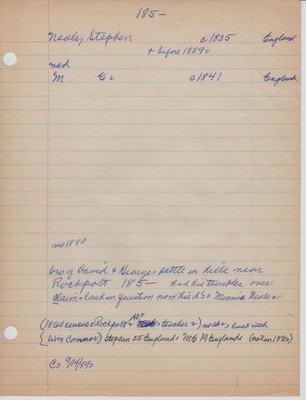 185-
Nealey Stephen c1835 England
+ before 1889s
med
M. E: c1841 England
no 1880
bro of David & George: settle in hills near
Rockport 185- had his troubles over
claim: land in question now his d's: Minnie Neale
(1860 census: Rockport: teacher 2) boat with
(Wm Connor) Stephen 25 England: M E 19 England: (not in 1870)
C: 9/14/89: